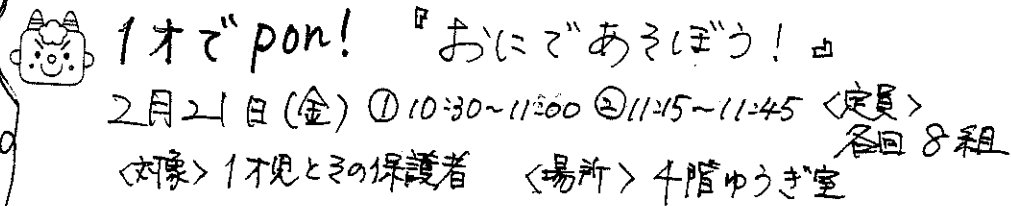 1才でpon! 『おにであそぼう!』
2月21日(金) ①10:30~11:00 ②11:15~11:45 〈定員〉
各回8組
〈対象〉1才児とその保護者 〈場所〉4階ゆうぎ室